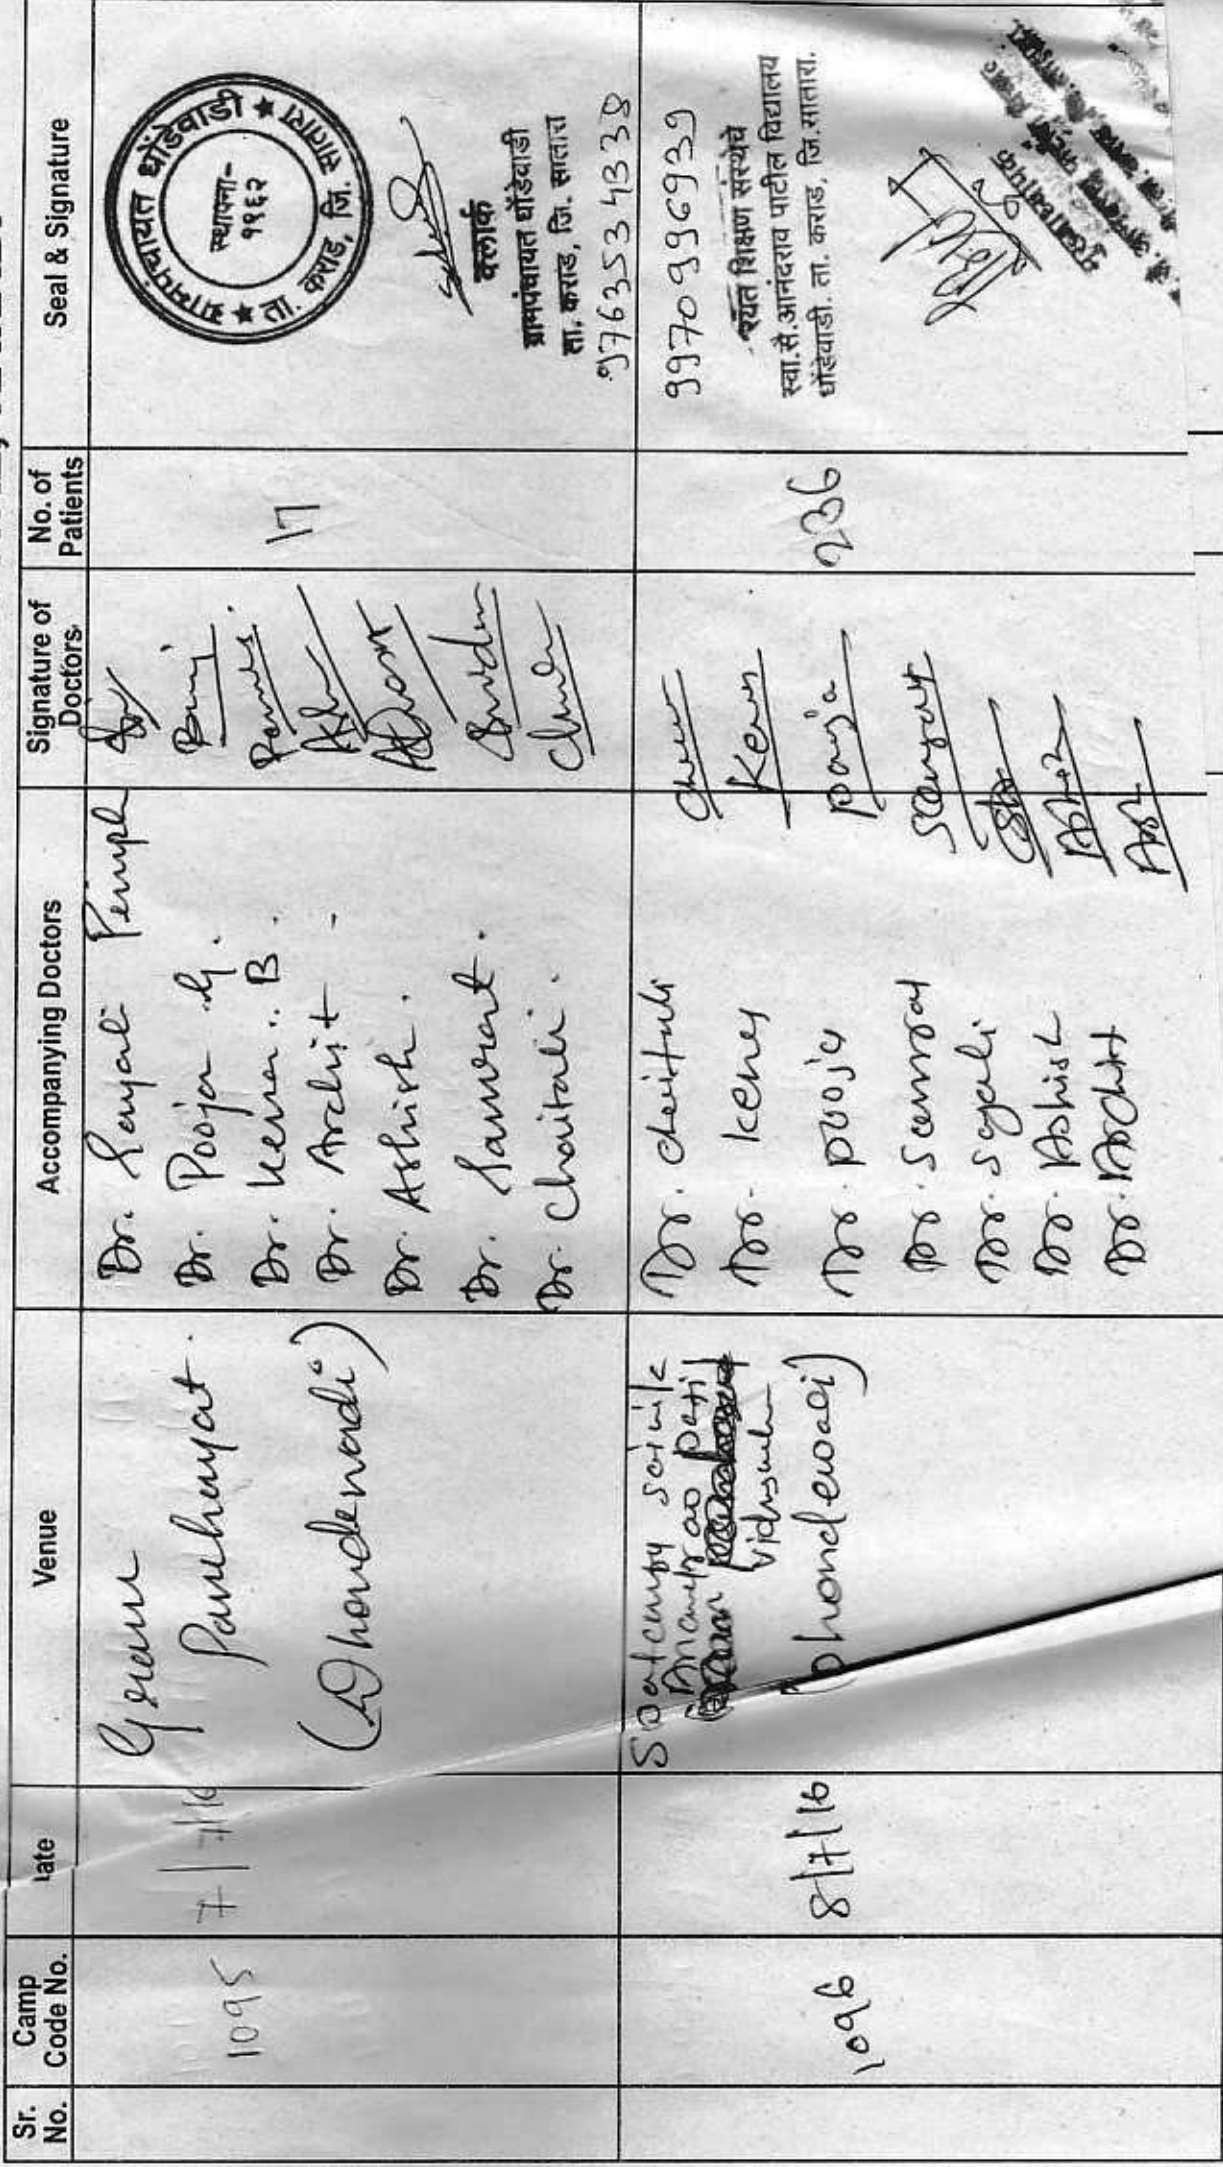 Sr. No.
Camp Code No.
ate
Venue
Accompanying Doctors
Signature of Doctors
No. of Patients
Seal & Signature
1095
7/7/16
Gram
Panchayat.
(Dhondewadi)
Dr. Sayali
Dr. Pooja G.
Dr. Kenar. B.
Dr. Archit
Dr. Ashish.
Dr. Samrat.
Dr. Chaitali.
17
ग्रामपंचायत धोंडेवाडी
ता. कराड, जि. सातारा
स्थापना-
१९६२
क्लार्क
ग्रामपंचायत धोंडेवाडी
ता. कराड, जि. सातारा
9763534338
1096
8/7/16
Anandrao patil
(Dhondewadi)
Dr. chaitali
Dr. Keney
Dr. pooja
Dr. Samrat
Dr. Sayali
Dr. Ashish
Dr. Archit
pooja
236
9970996939
रयत शिक्षण संस्थेचे
स्वा.सै.आनंदराव पाटील विद्यालय
धोंडेवाडी. ता. कराड, जि.सातारा.
मुख्याध्यापक